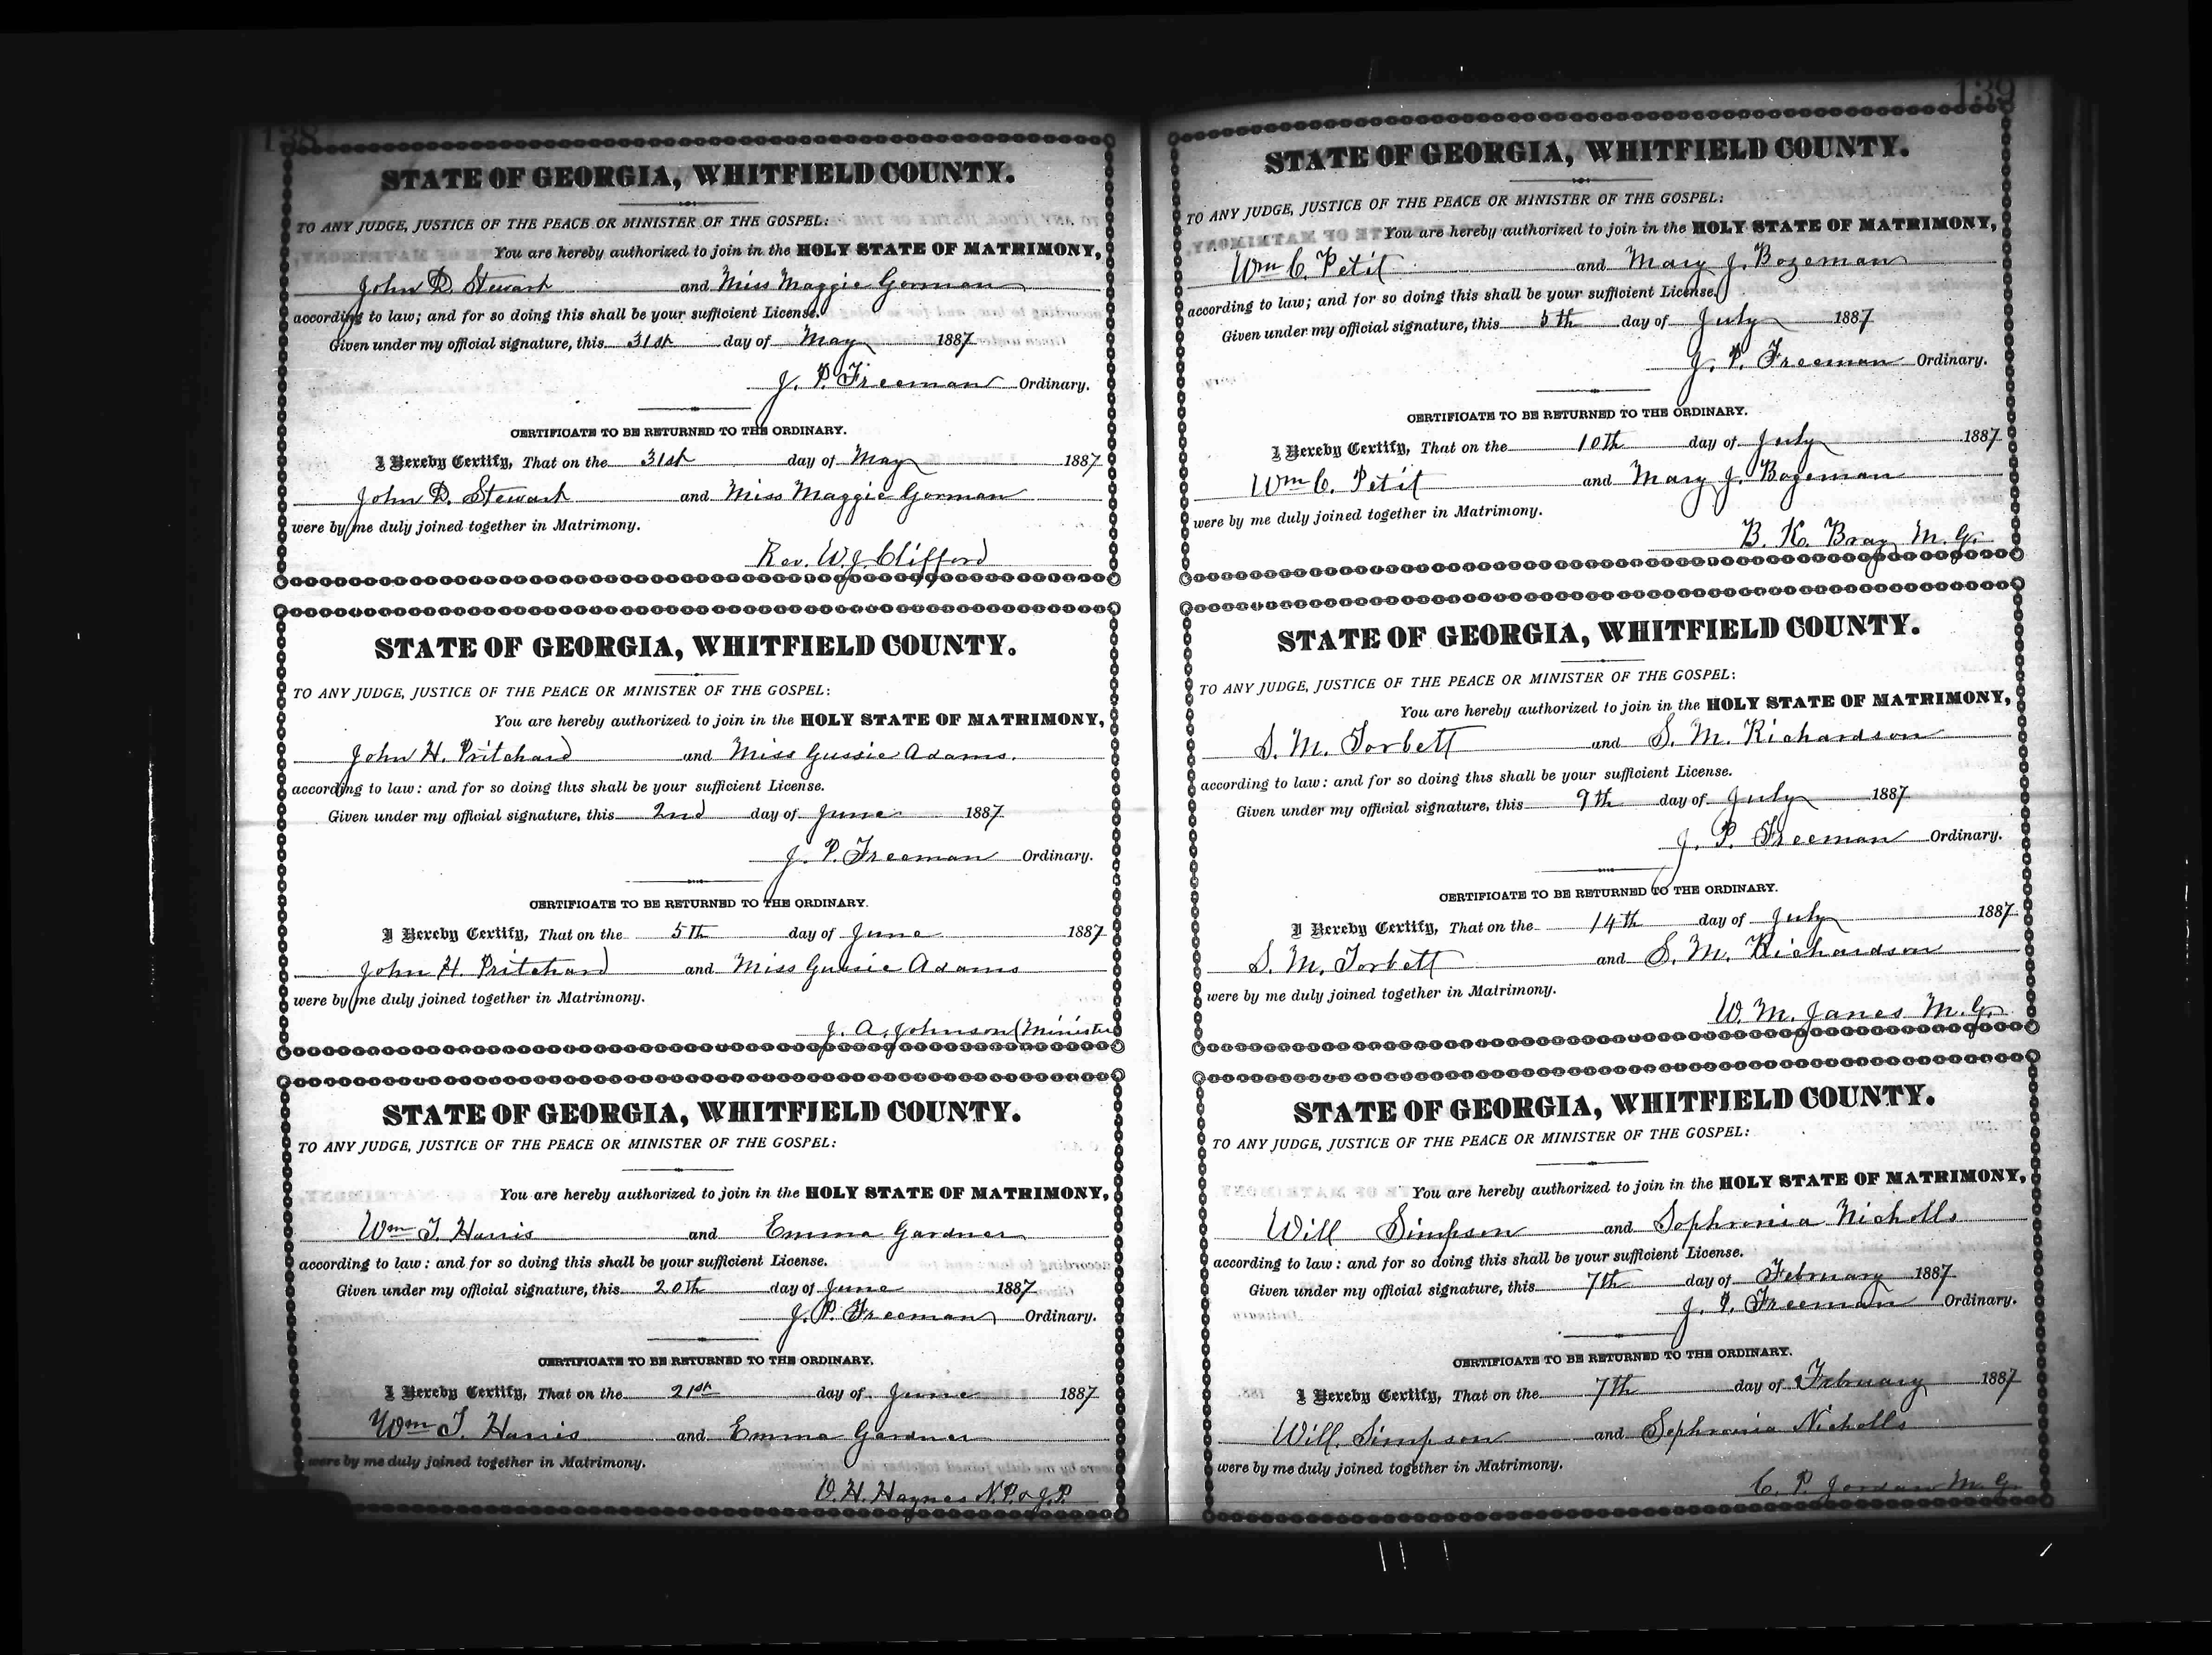 138
STATE OF GEORGIA, WHITFIELD COUNTY.
TO ANY JUDGE, JUSTICE OF THE PEACE OR MINISTER OF THE GOSPEL:
You are hereby authorized to join in the HOLY STATE OF MATRIMONY,
John D. Stewart and Miss Maggie Gorman
according to law; and for so doing this shall be your sufficient License.
Given under my official signature, this 31st day of May 1887
J. P. Freeman Ordinary.
CERTIFICATE TO BE RETURNED TO THE ORDINARY.
I Hereby Certify, That on the 31st day of May 1887
John D. Stewart and Miss Maggie Gorman
were by me duly joined together in Matrimony.
Rev. W. J. Clifford
STATE OF GEORGIA, WHITFIELD COUNTY.
TO ANY JUDGE, JUSTICE OF THE PEACE OR MINISTER OF THE GOSPEL:
You are hereby authorized to join in the HOLY STATE OF MATRIMONY,
John H. Pritchard and Miss Gussie Adams.
according to law: and for so doing this shall be your sufficient License.
Given under my official signature, this 2nd day of June 1887
J. P. Freeman Ordinary.
CERTIFICATE TO BE RETURNED TO THE ORDINARY.
I Hereby Certify, That on the 5th day of June 1887
John H. Pritchard and Miss Gussie Adams
were by me duly joined together in Matrimony.
J. A. Johnson (Minister
STATE OF GEORGIA, WHITFIELD COUNTY.
TO ANY JUDGE, JUSTICE OF THE PEACE OR MINISTER OF THE GOSPEL:
You are hereby authorized to join in the HOLY STATE OF MATRIMONY,
Wm T. Harris and Emma Gardner
according to law: and for so doing this shall be your sufficient License.
Given under my official signature, this 20th day of June 1887
J. P. Freeman Ordinary.
CERTIFICATE TO BE RETURNED TO THE ORDINARY.
I Hereby Certify, That on the 21st day of June 1887
Wm T. Harris and Emma Gardner
were by me duly joined together in Matrimony.
O. H. Haynes N.P. & J.P.
139
STATE OF GEORGIA, WHITFIELD COUNTY.
TO ANY JUDGE, JUSTICE OF THE PEACE OR MINISTER OF THE GOSPEL:
You are hereby authorized to join in the HOLY STATE OF MATRIMONY,
Wm C. Petit and Mary J. Bozeman
according to law; and for so doing this shall be your sufficient License.
Given under my official signature, this 5th day of July 1887
J. P. Freeman Ordinary.
CERTIFICATE TO BE RETURNED TO THE ORDINARY.
I Hereby Certify, That on the 10th day of July 1887
Wm C. Petit and Mary J. Bozeman
were by me duly joined together in Matrimony.
B. K. Bray M. G.
STATE OF GEORGIA, WHITFIELD COUNTY.
TO ANY JUDGE, JUSTICE OF THE PEACE OR MINISTER OF THE GOSPEL:
You are hereby authorized to join in the HOLY STATE OF MATRIMONY,
S. M. Torbett and S. M. Richardson
according to law: and for so doing this shall be your sufficient License.
Given under my official signature, this 9th day of July 1887
J. P. Freeman Ordinary.
CERTIFICATE TO BE RETURNED TO THE ORDINARY.
I Hereby Certify, That on the 14th day of July 1887
S. M. Torbett and S. M. Richardson
were by me duly joined together in Matrimony.
W. M. Janes M. G.
STATE OF GEORGIA, WHITFIELD COUNTY.
TO ANY JUDGE, JUSTICE OF THE PEACE OR MINISTER OF THE GOSPEL:
You are hereby authorized to join in the HOLY STATE OF MATRIMONY,
Will Simpson and Sophronia Nicholls
according to law: and for so doing this shall be your sufficient License.
Given under my official signature, this 7th day of February 1887
J. P. Freeman Ordinary.
CERTIFICATE TO BE RETURNED TO THE ORDINARY.
I Hereby Certify, That on the 7th day of February 1887
Will. Simpson and Sophronia Nicholls
were by me duly joined together in Matrimony.
C. P. Jordan M. G.